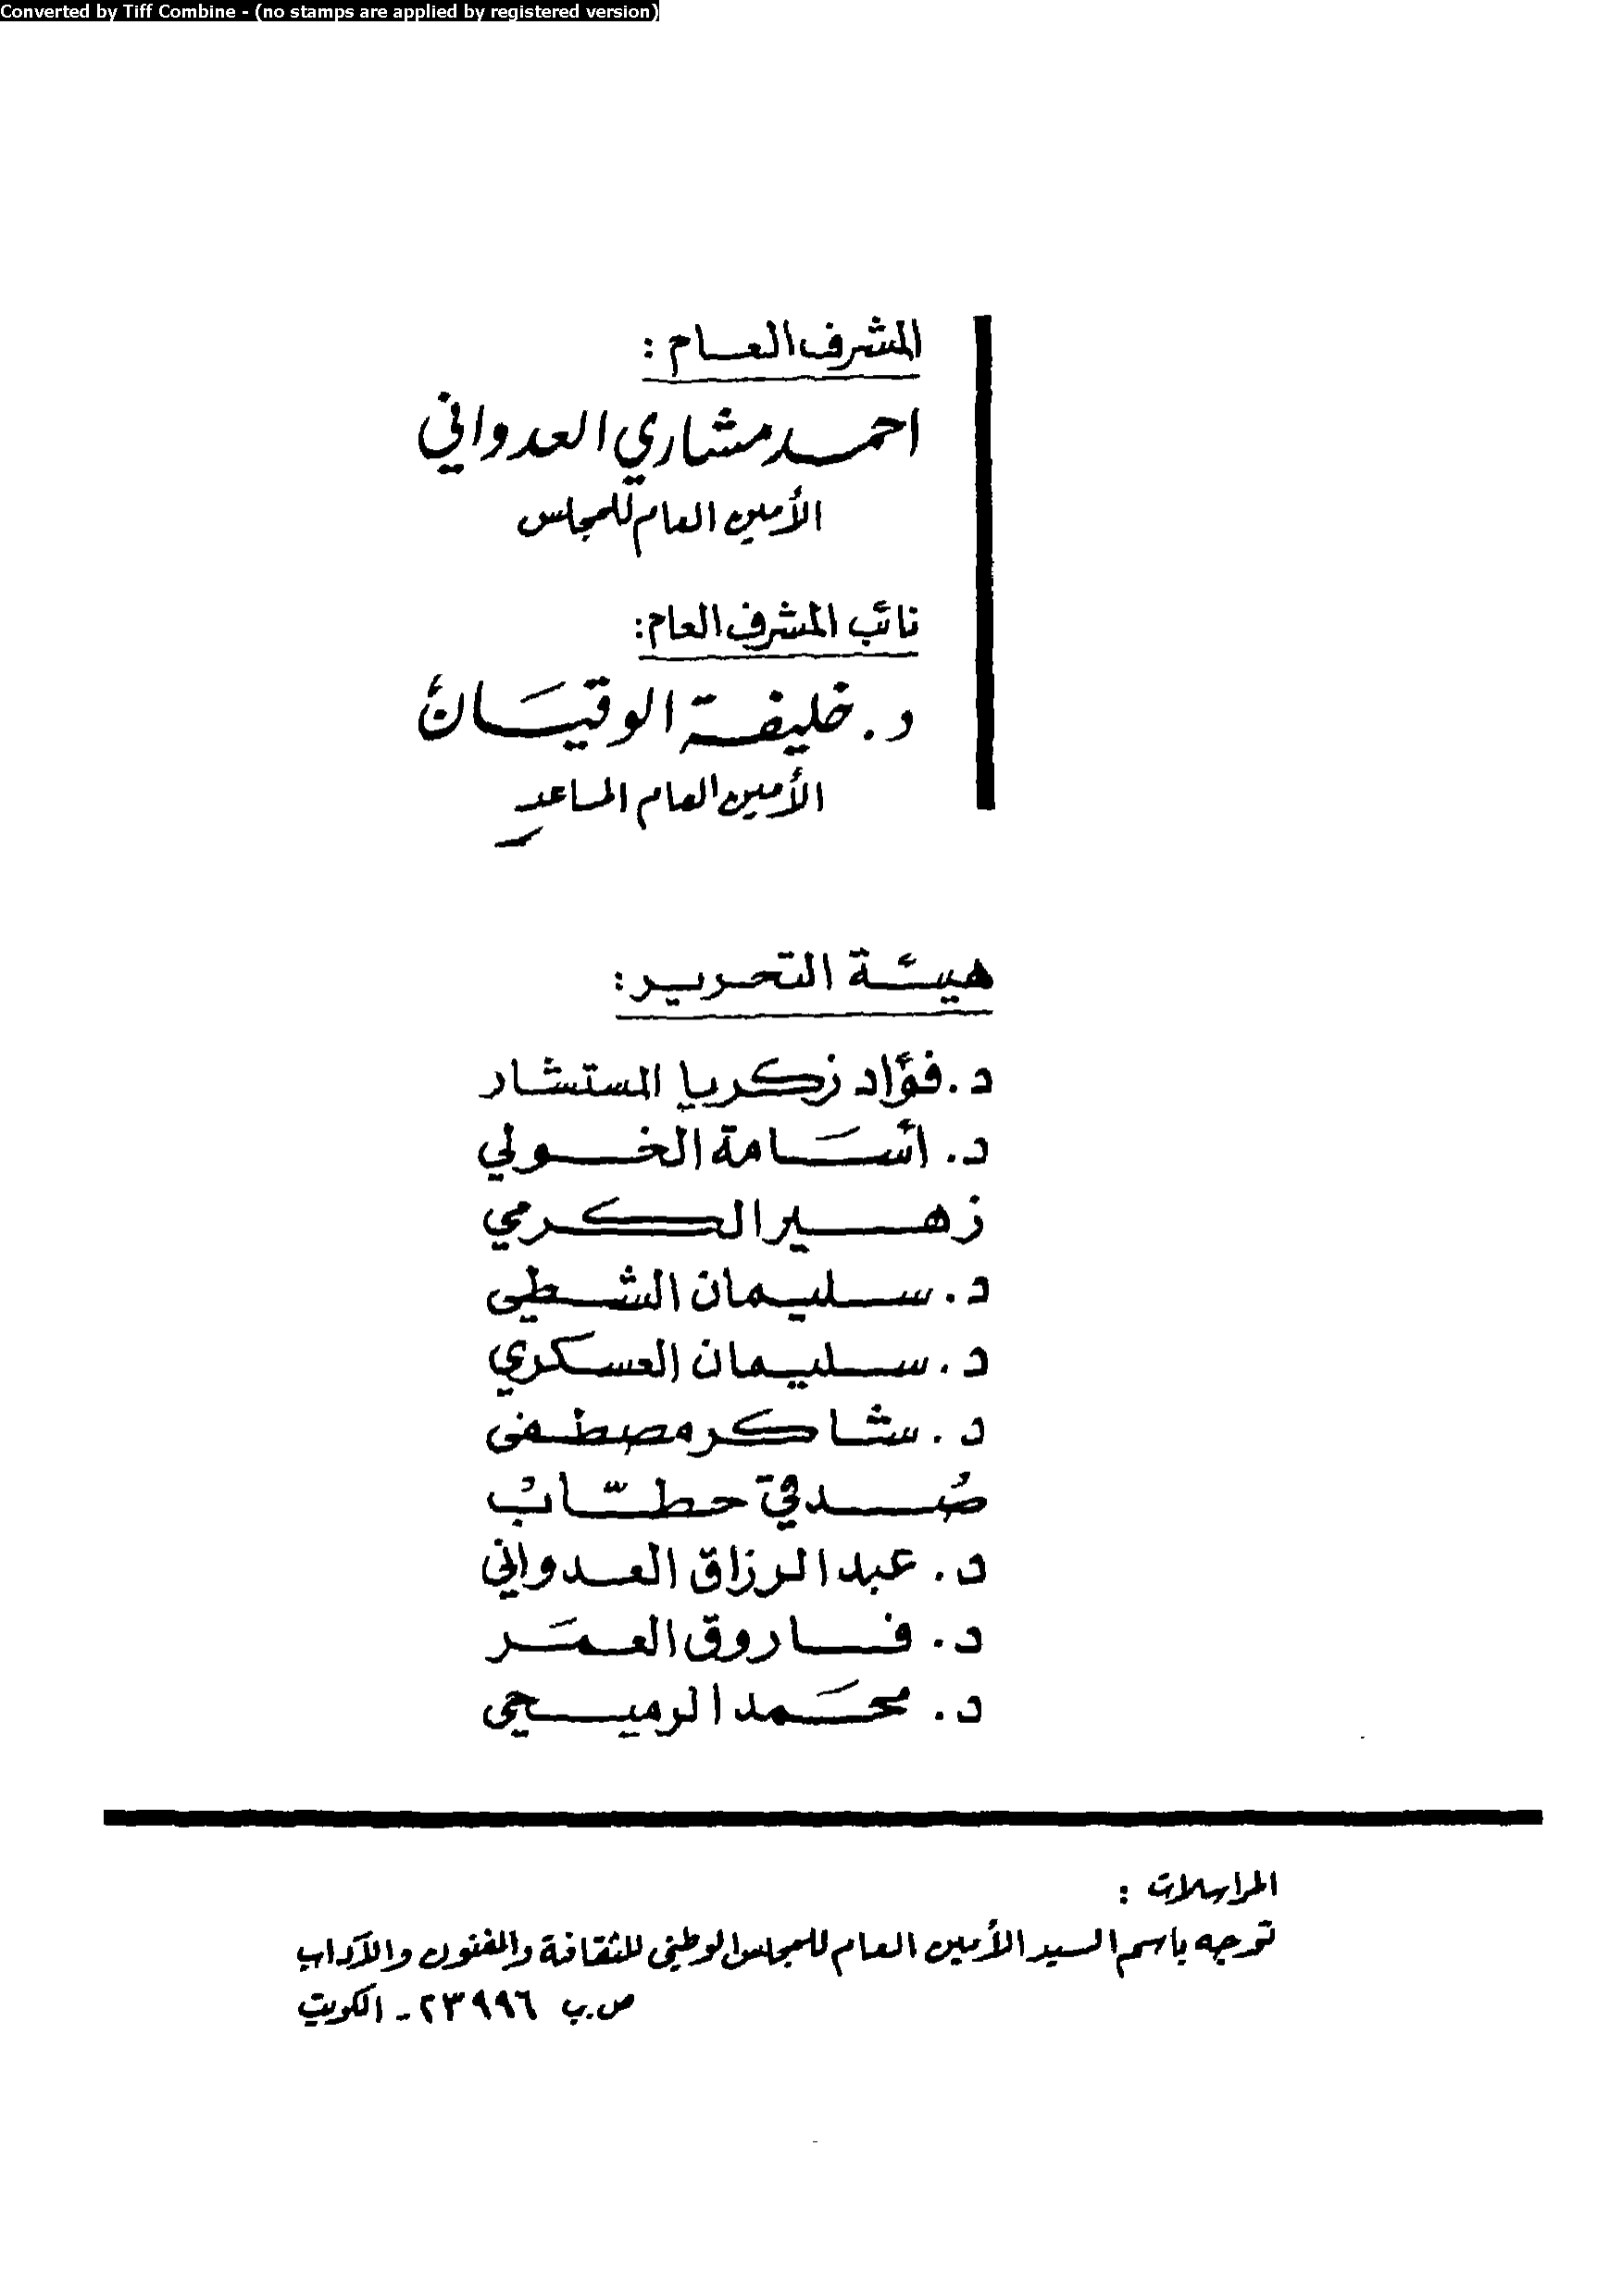 Converted by Tiff Combine - (no stamps are applied by registered version)
المشرف العام :
احمد مشاري العدواني
الأمين العام للمجلس
نائب المشرف العام:
د. خليفة الوقيَان
الأمين العام المساعد
هيئة التحرير:
د. فؤاد زكريا المستشار
د. أسَامة الخولي
زهير الكرمي
د. سليمان الشطي
د. سليمان العسكري
د. شاكر مصطفى
صُدقي حطّابْ
د. عبد الرزاق العدواني
د. فاروق العمَر
د. محَمد الرميحي
المراسلات :
توجه باسم السيد الأمين العام للمجلس الوطني للثقافة والفنون والآداب
ص.ب ٢٣٩٩٦ - الكويت